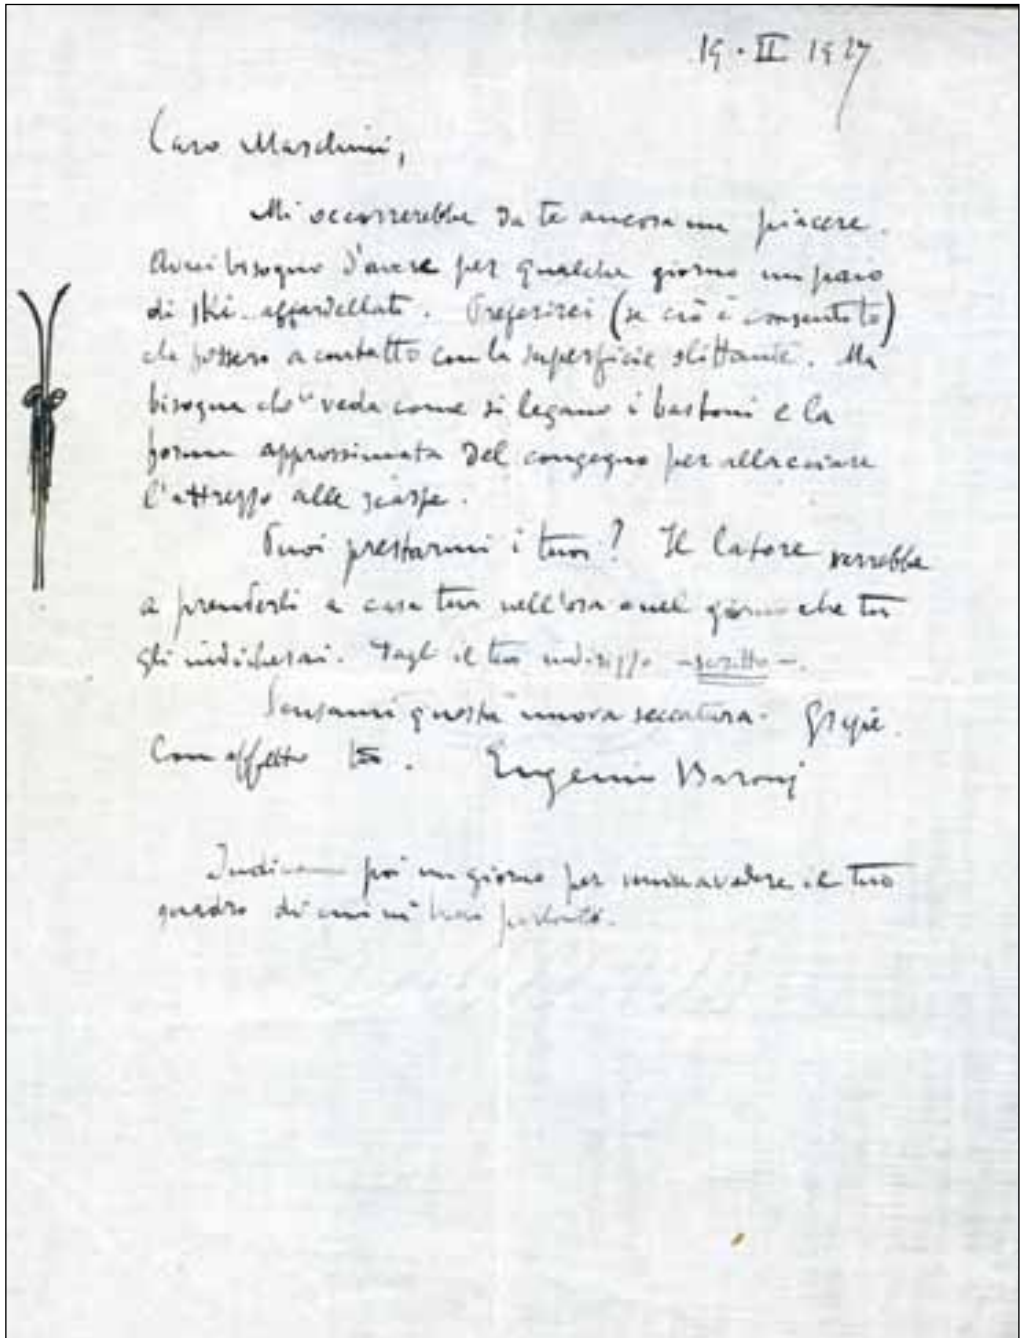 19·II 1927
Caro Maschini,
Mi occorrerebbe da te ancora un piacere.
Avrei bisogno d'avere per qualche giorno un paio
di ski affardellati. Preferirei (se ciò è consentito)
che fossero a contatto con la superficie slittante. Ma
bisogna che veda come si legano i bastoni e la
forma approssimata del congegno per allacciare
l'attrezzo alle scarpe.
Puoi prestarmi i tuoi? Il latore verrebbe
a prenderli a casa tua nell'ora e nel giorno che tu
gli indicherai. Dagli il tuo indirizzo – scritto –.
Scusami questa nuova seccatura. Grazie.
Con affetto tuo. Eugenio Baroni
poi un giorno per vedere il tuo
quadro di cui mi hai parlato.